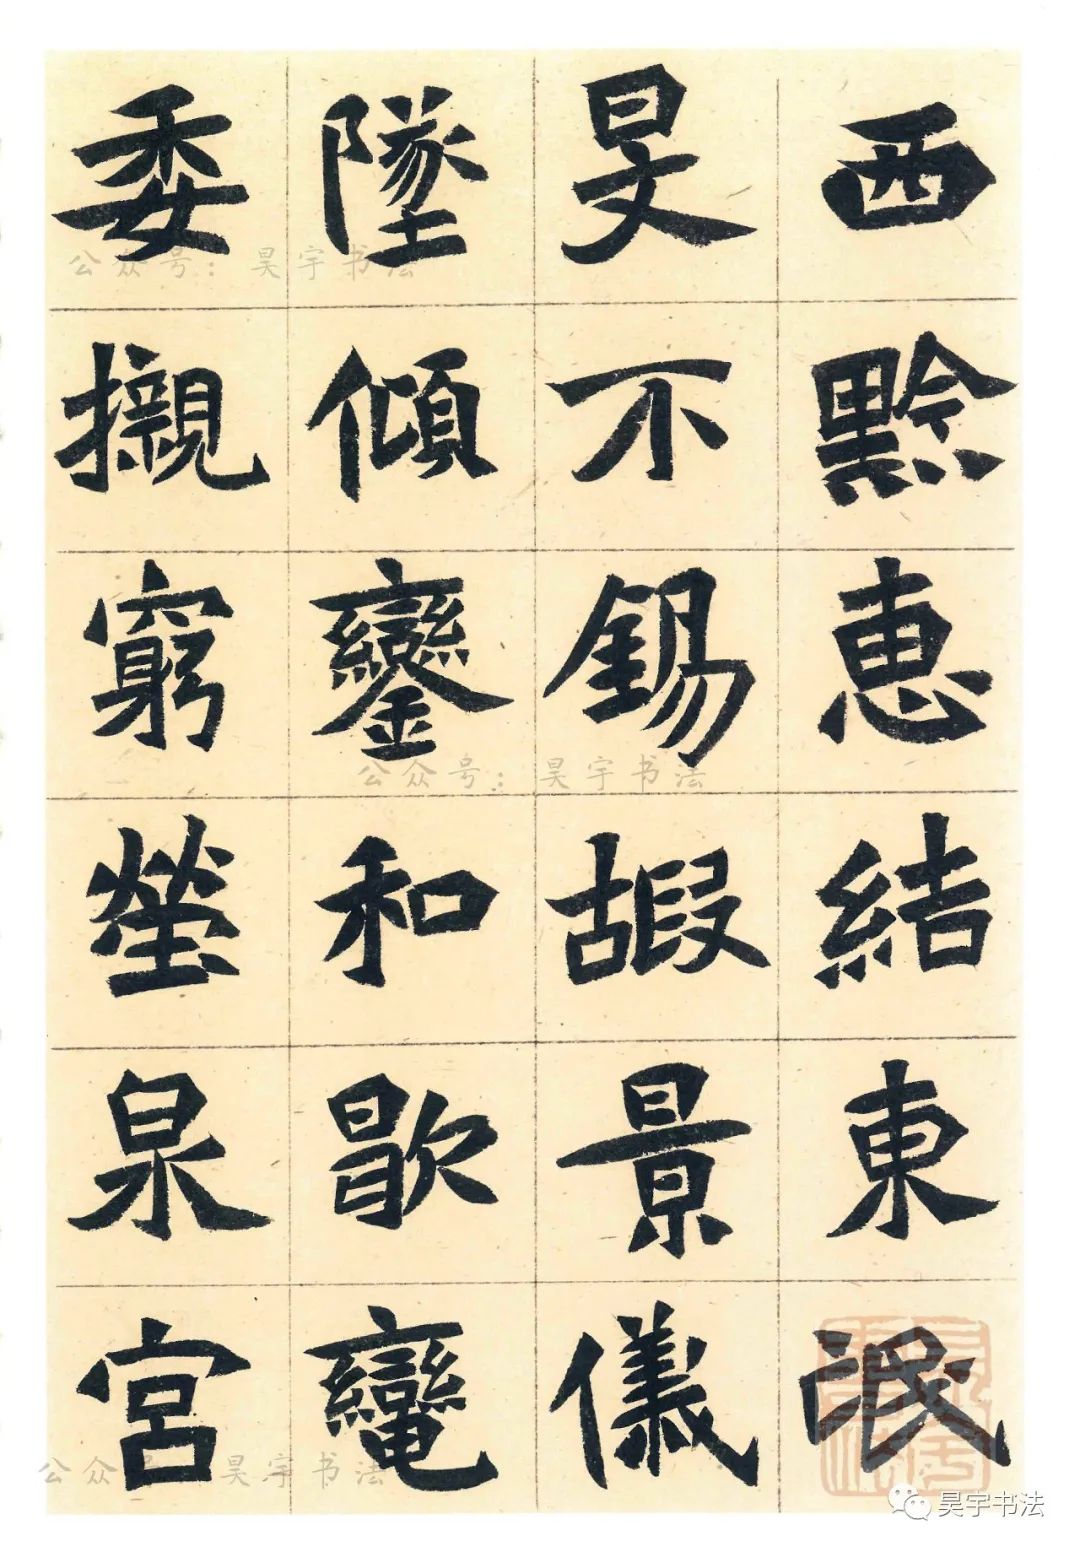 西黔惠結東泯
旻不錫嘏景儀
墜傾鑾和歇鼉
委櫬窮塋泉宮
公众号：昊宇书法
公众号：昊宇书法
公众号：昊宇书法
昊宇书法